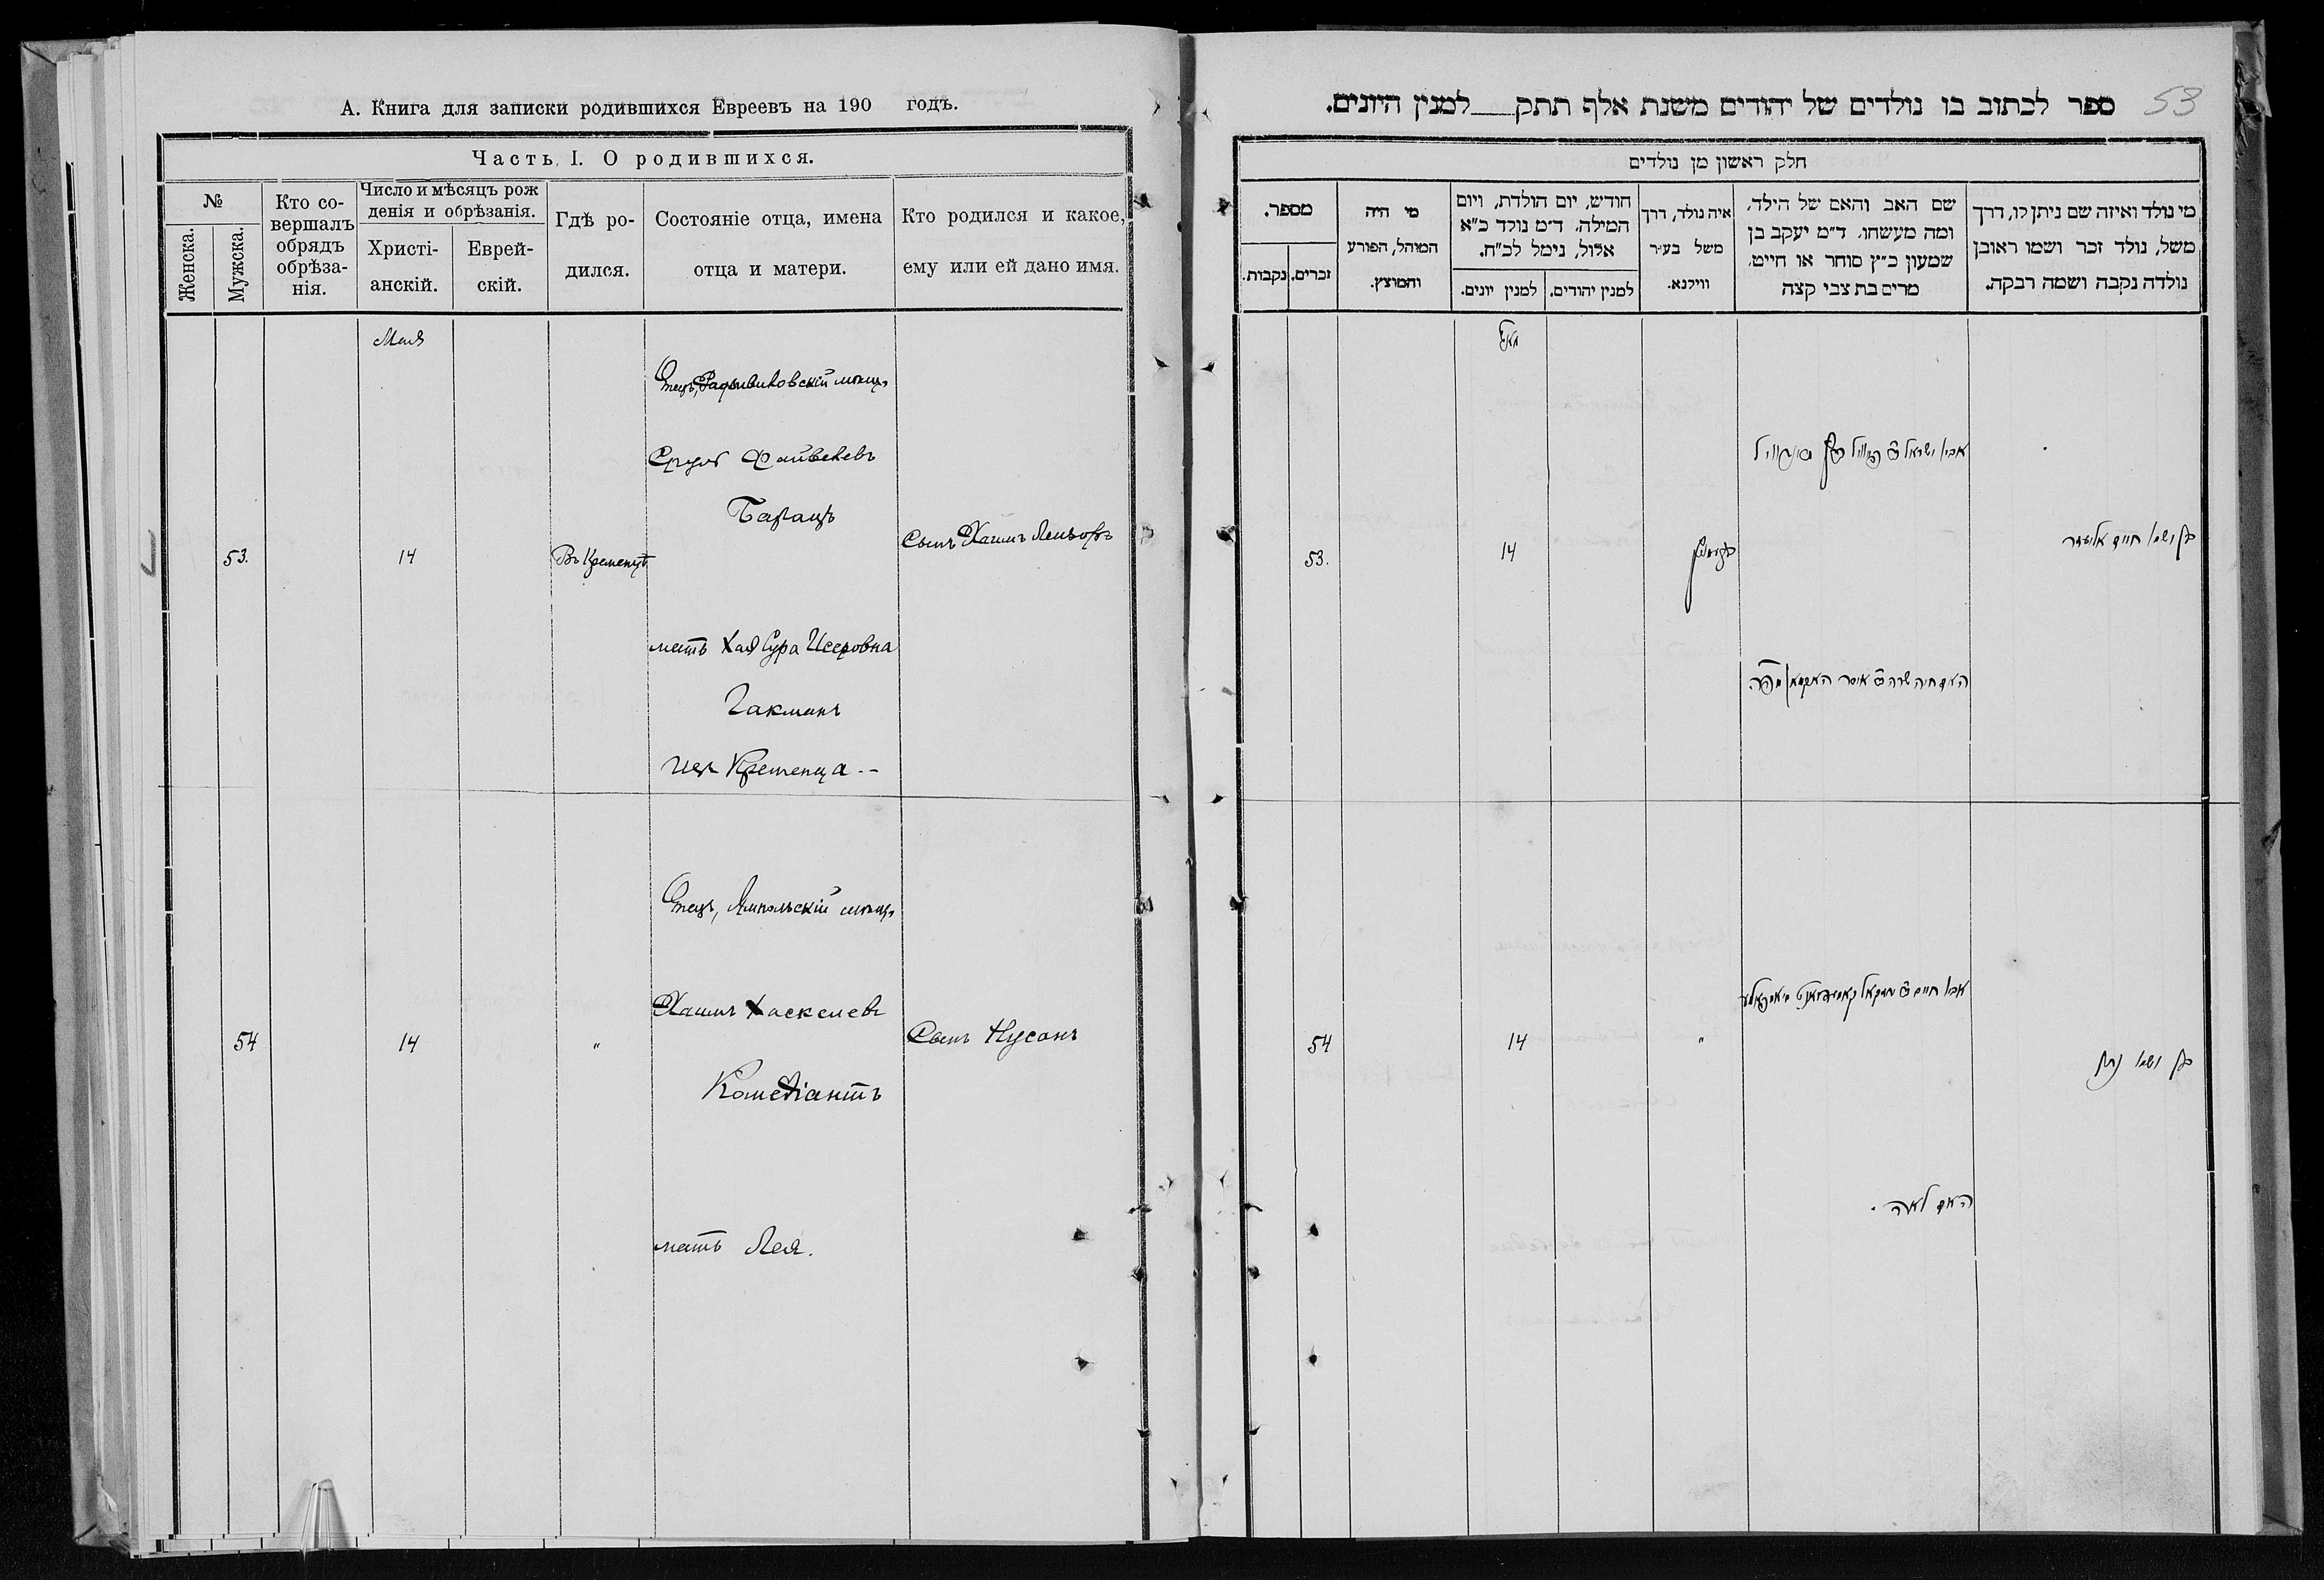 А. Книга для записки родившихся Евреевъ на 190 годъ.
Часть I. О родившихся.
№
Женска.
Мужска.
Кто со-
вершалъ
обрядъ
обрѣза-
нія.
Число и мѣсяцъ рож
денія и обрѣзанія.
Христі-
анскій.
Еврей-
скій.
Гдѣ ро-
дился.
Состояніе отца, имена
отца и матери.
Кто родился и какое,
ему или ей дано имя.
Мая
Отецъ, Радзивиловскій мѣщ.
Срулъ Файвелевъ
Барацъ
53.
14
Въ Кременцѣ
Сынъ Хаимъ Лейзоръ
мать Хая Сура Исеровна
Гакманъ
изъ Кременца --
Отецъ, Ямпольскій мѣщ.
Хаимъ Хаскелевъ
54
14
"
Сынъ Нусонъ
Комедіантъ
мать Лея.
ספר לכתוב בו נולדים של יהודים משנת אלף תתק למנין היונים.
53
חלק ראשון מן נולדים
מספר.
נקבות.
זכרים.
מי היה
המוהל, הפורע
והמוצץ.
חודש, יום הולדת, ויום
המילה. ד"מ נולד כ"א
אלול, נימל לכ"ח.
למנין יונים.
למנין יהודים.
איה נולד, דרך
משל בעיר
ווילנא.
שם האב והאם של הילד,
ומה מעשהו. ד"מ יעקב בן
שמעון כ"ץ סוחר או חייט.
מרים בת צבי קצה
מי נולד ואיזה שם ניתן לו, דרך
משל, נולד זכר ושמו ראובן
נולדה נקבה ושמה רבקה.
מאי
אביו ישראל
53.
14
בן ושמו חיים אליעזר
האם חיה שרה איסר האקמאן
אביו חיים יחזקאל קאמעדיאנט
54
14
"
בן ושמו נתן
האם לאה.